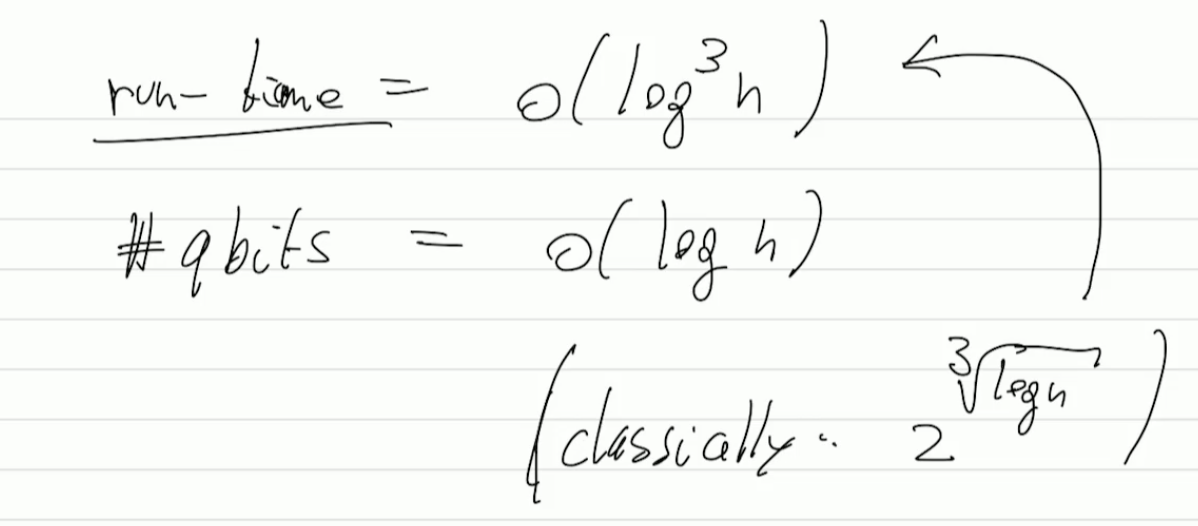 run-time = O(log³ n)
# qbits = O(log n)
(classically: 2^∛(log n))